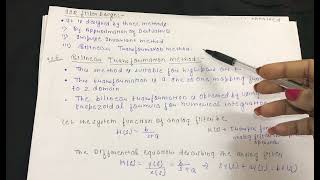 IIR filter design:-
It is designed by three methods
i) By Approximation of Derivatives
ii) Impulse Invariance method
iii) Bilinear Transformation method.
Bilinear Transformation method:-
This method is suitable for highpass
This transformation is a one to one mapping from
to Z domain
The bilinear transformation is obtained by using
trapezoidal formula for numerical integration
Let the system function of analog filter be
H(s) = b / s+a
analog filter
The Differential equation describing the analog filter
H(s) = Y(s) / X(s) = b / s+a